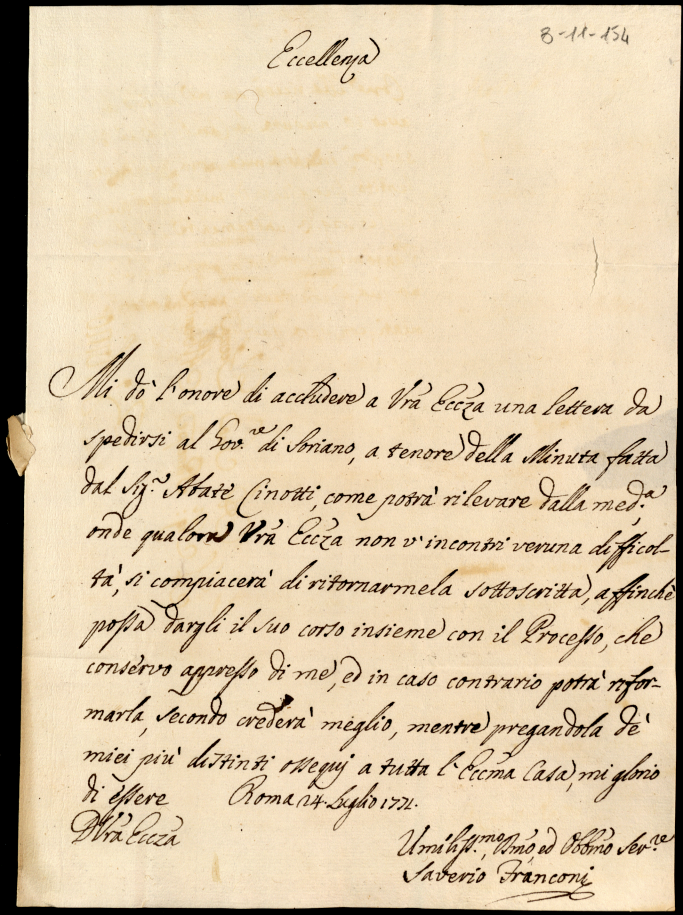 8-11-154
Eccellenza
Mi dò l'onore di accludere a Vrã Eccza una lettera da
spedirsi al Gov.re di Soriano, a tenore della Minuta fatta
dal Sig.r Abate Cinotti, come potrà rilevare dalla med.a
onde qualora Vrã Eccza non v'incontri veruna difficol-
tà, si compiacerà di ritornarmela sottoscritta, affinchè
possa dargli il suo corso insieme con il Processo, che
conservo appresso di me, ed in caso contrario potrà rifor-
marla, secondo crederà meglio, mentre pregandola de'
miei più distinti ossequj a tutta l'Eccma Casa, mi glorio
di essere Roma 24 Luglio 1771.
D Vrã Eccza
Umiliss.mo, Dmo, ed Obbmo Ser.re
Saverio Franconi